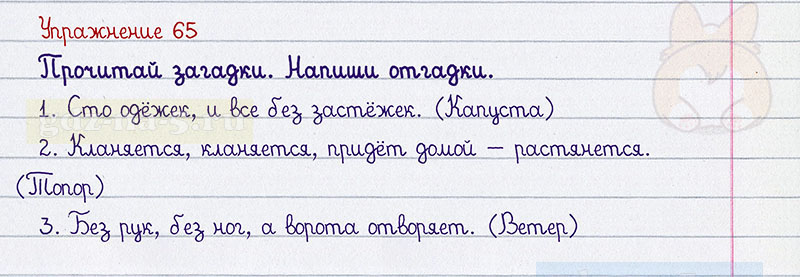 Упражнение 65
Прочитай загадки. Напиши отгадки.
1. Сто одёжек, и все без застёжек. (Капуста)
2. Кланяется, кланяется, придёт домой – растянется.
(Топор)
3. Без рук, без ног, а ворота отворяет. (Ветер)